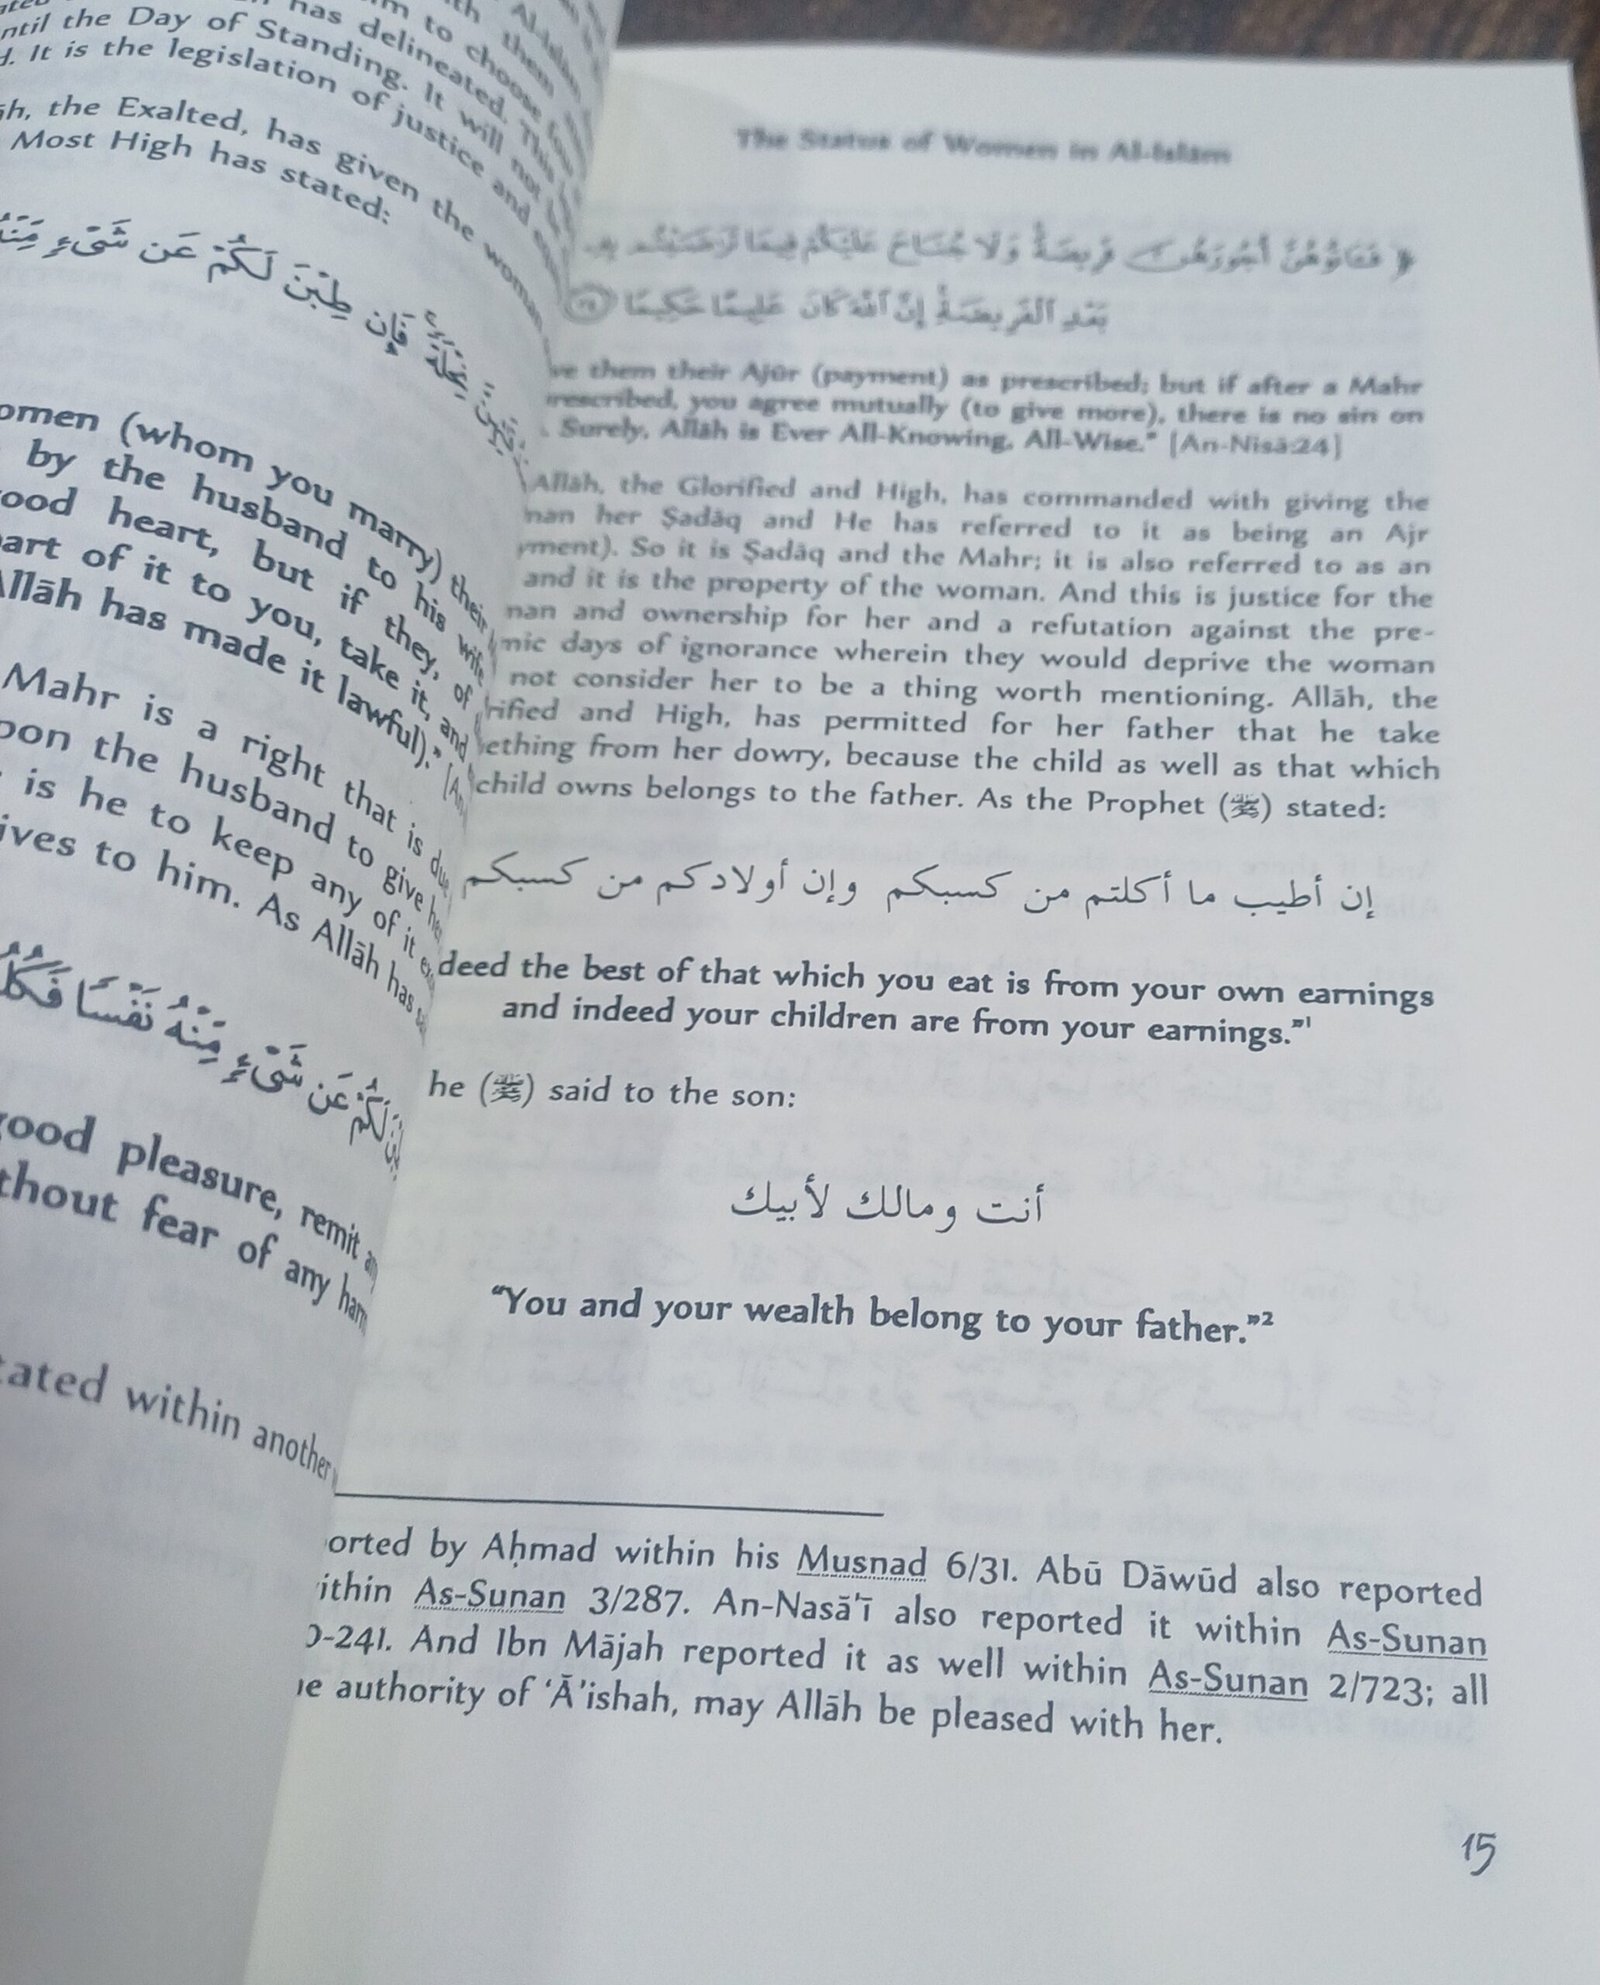 until the Day of Standing. It will not
It is the legislation of justice and
the Exalted, has given the woman
Most High has stated:
فَإِن طِبْنَ لَكُمْ عَن شَىْءٍ
(whom you marry) their
by the husband to his wife
heart, but if they, of
of it to you, take it, and
Allāh has made it lawful)."
Mahr is a right that is due
the husband to give her
is he to keep any of it
to him. As Allāh has
لَكُمْ عَن شَىْءٍ مِّنْهُ نَفْسًا
good pleasure, remit
fear of any harm
within another
The Status of Women in Al-Islām
﴿ فَـَٔاتُوهُنَّ أُجُورَهُنَّ فَرِيضَةً وَلَا جُنَاحَ عَلَيْكُمْ فِيمَا تَرَٰضَيْتُم بِهِۦ
بَعْدِ ٱلْفَرِيضَةِ إِنَّ ٱللَّهَ كَانَ عَلِيمًا حَكِيمًا
them their Ajūr (payment) as prescribed; but if after a Mahr
you agree mutually (to give more), there is no sin on
Surely, Allāh is Ever All-Knowing, All-Wise." [An-Nisā:24]
Allāh, the Glorified and High, has commanded with giving the
her Ṣadāq and He has referred to it as being an Ajr
So it is Ṣadāq and the Mahr; it is also referred to as an
and it is the property of the woman. And this is justice for the
and ownership for her and a refutation against the pre-
days of ignorance wherein they would deprive the woman
not consider her to be a thing worth mentioning. Allāh, the
and High, has permitted for her father that he take
from her dowry, because the child as well as that which
child owns belongs to the father. As the Prophet (ﷺ) stated:
إن أطيب ما أكلتم من كسبكم وإن أولادكم من كسبكم
the best of that which you eat is from your own earnings
and indeed your children are from your earnings."1
he (ﷺ) said to the son:
أنت ومالك لأبيك
"You and your wealth belong to your father."2
by Aḥmad within his Musnad 6/31. Abū Dāwūd also reported
As-Sunan 3/287. An-Nasā'ī also reported it within As-Sunan
And Ibn Mājah reported it as well within As-Sunan 2/723; all
authority of 'Ā'ishah, may Allāh be pleased with her.
15